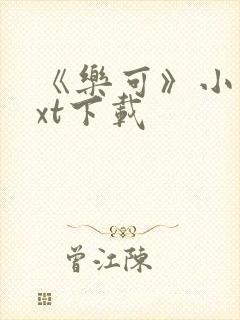 《樂可》小
xt下載
曾江陳